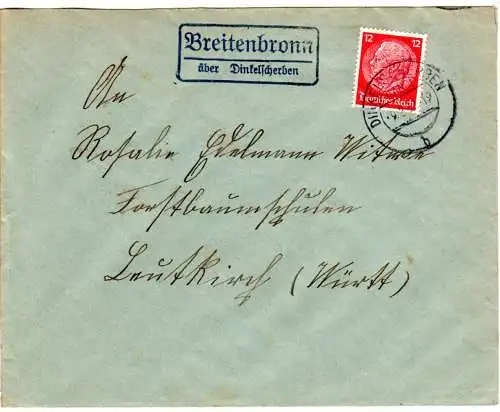 Breitenbronn
über Dinkelscherben
12 12
Deutsches Reich
An
Rosalie Edelmann Witwe
Forstbaumschulen
Leutkirch (Württ)
b